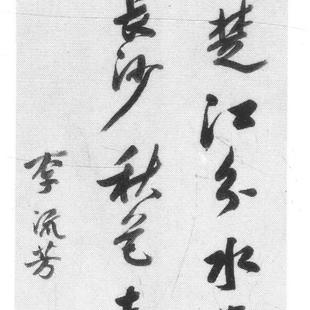 楚江分水
長沙秋色
李流芳